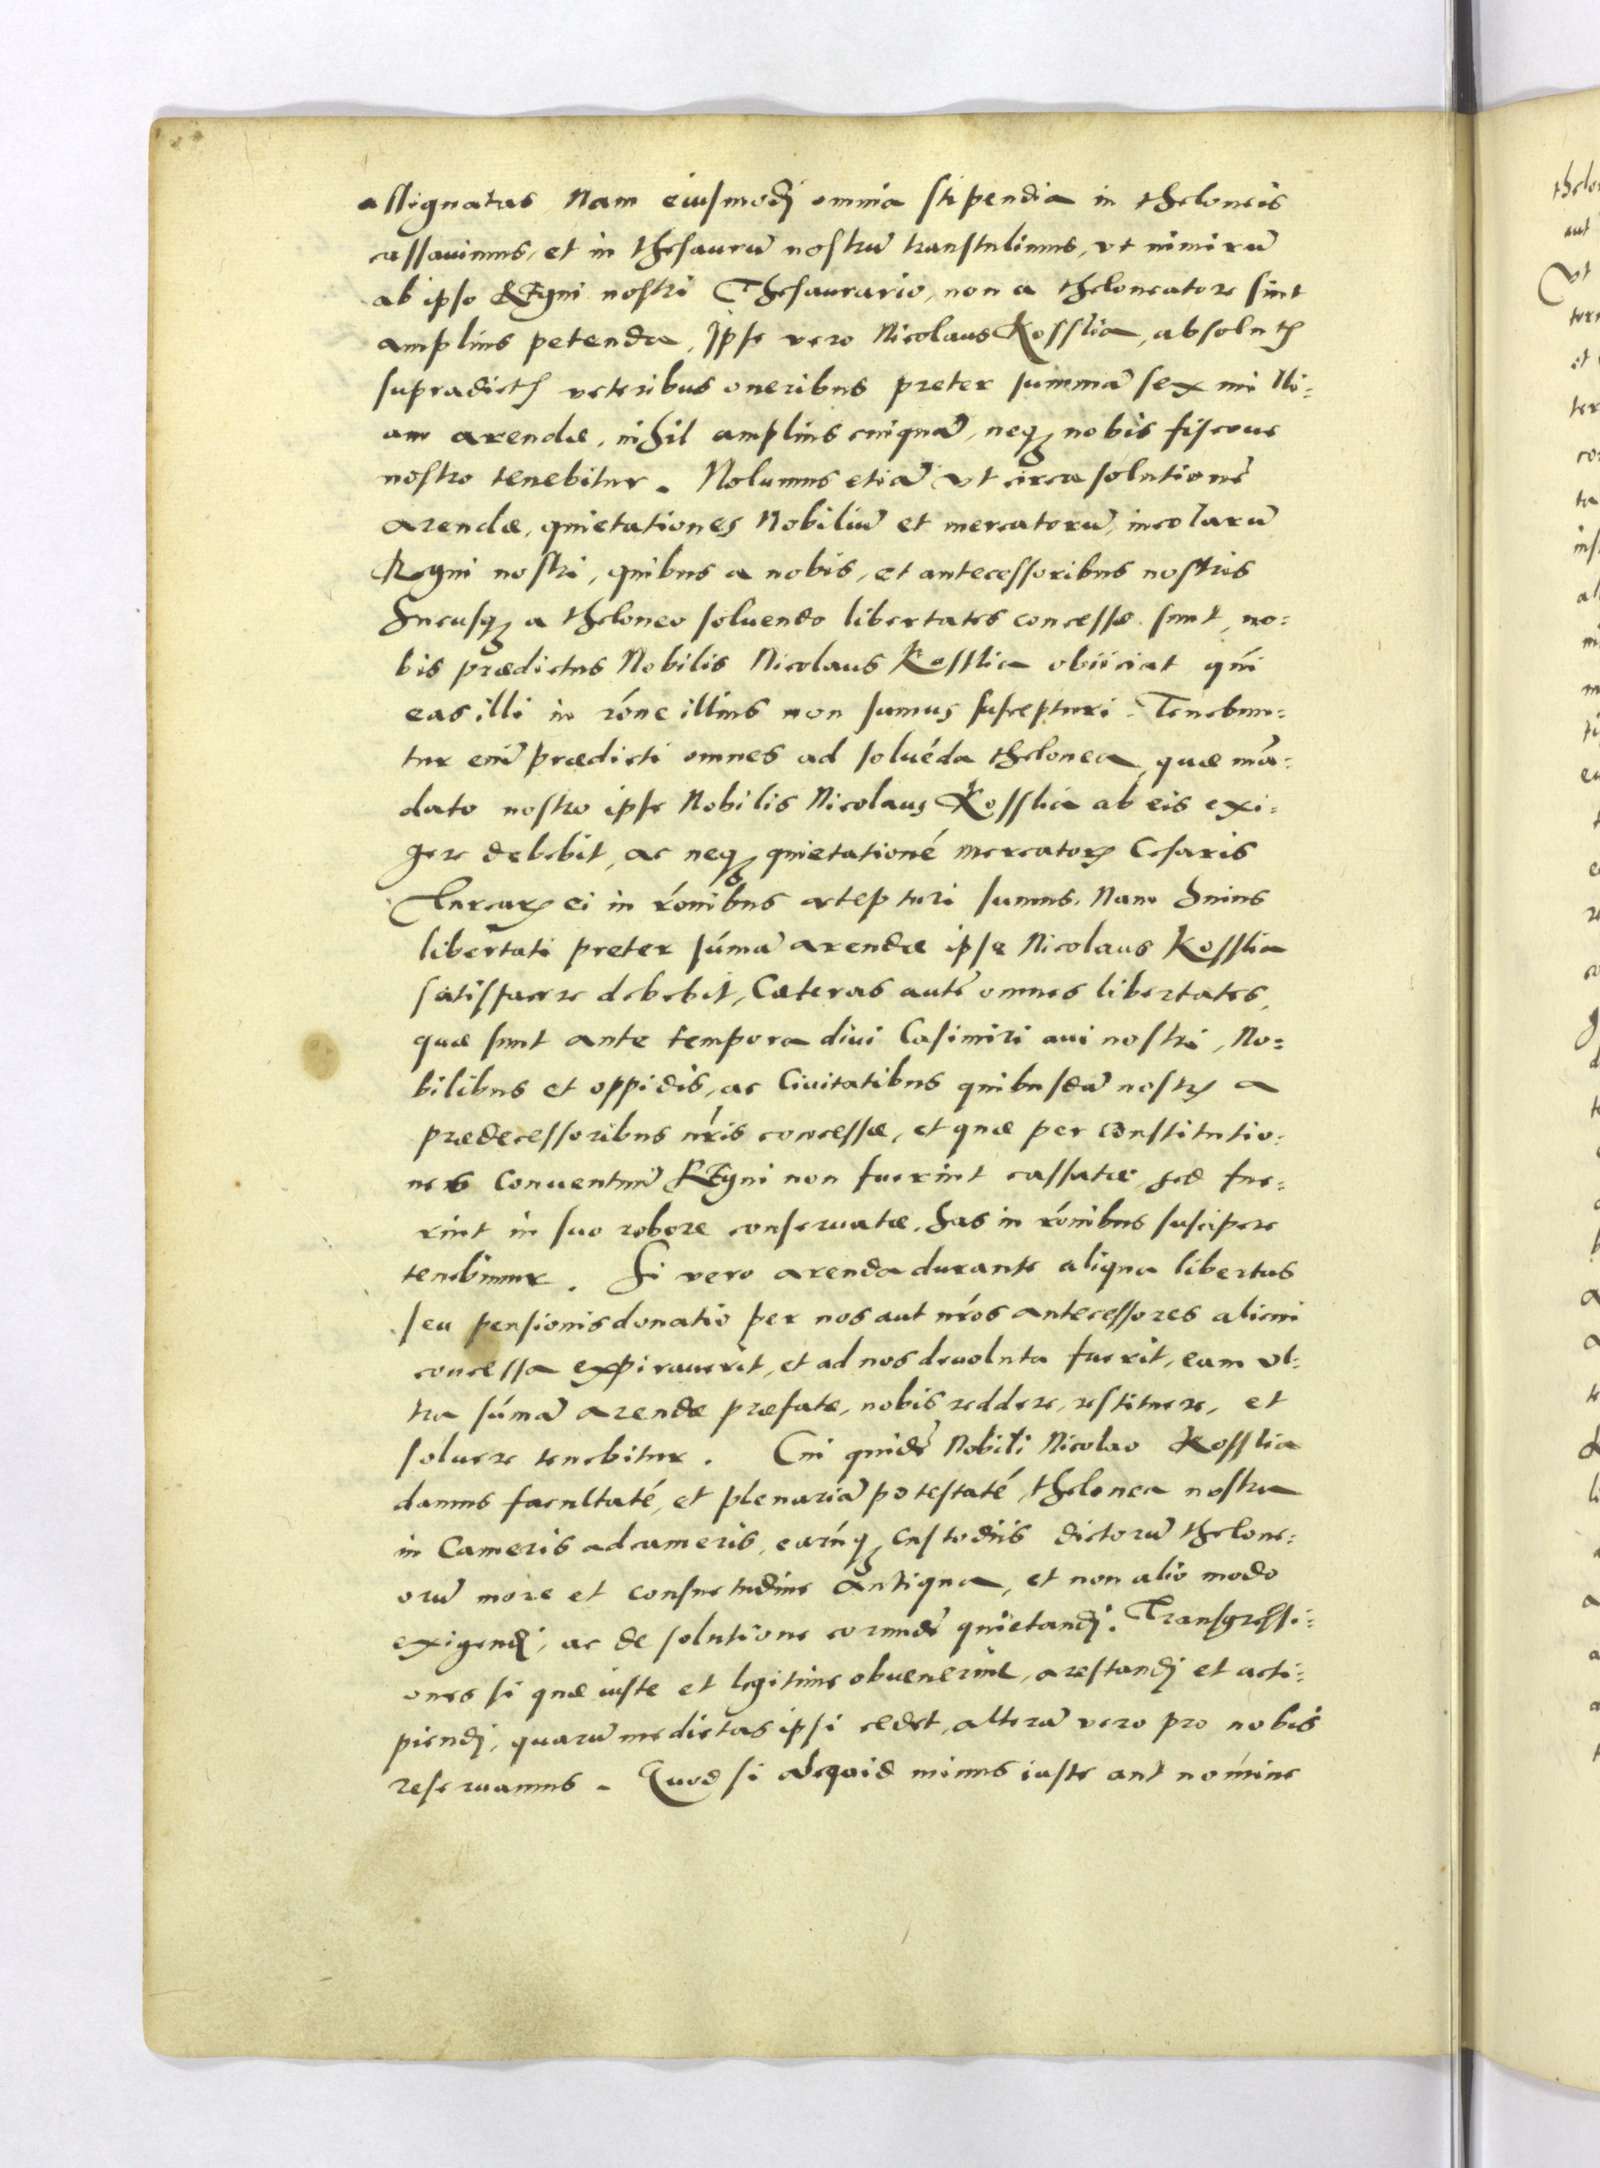 assignatas Nam eiusmodj omnia stipendia in theloneis
cassauimus, et in thesaurū nostrū transtulimus, vt nimirū
ab ipso Regni nostri Thesaurario, non a theloneatore sint
amplius petenda, Ipse vero Nicolaus Kosslia, absolutꝭ
supradictꝭ veteribus oneribus preter summā sex mi lli-
um arendæ, nihil amplius cuiquā, neqꝫ nobis fiscoue
nostro tenebitur. Nolumus etiā vt circa solutionē
arendæ, quietationes Nobiliū et mercatorū, incolarū
Regni nostri, quibus a nobis, et antecessoribus nostris
hucusqꝫ a theloneo soluendo libertates concessæ sunt, no-
bis prædictus Nobilis Nicolaus Kosslia obiiciat qńi
eas illi in rōne illius non sumus suscepturi. Tenebun-
tur enī prædicti omnes ad soluēda thelonea, quæ mā-
dato nostro ipse Nobilis Nicolaus Kosslia ab eis exi-
gere debebit, ac neqꝫ quietationē mercatorꝝ Cesaris
Turcarꝝ ei in rōnibus accepturi sumus. Nam huius
libertati preter sūmā arendæ ipse Nicolaus Kosslia
satisfacere debebit, Cæteras autē omnes libertates,
quæ sunt ante tempora diui Casimiri aui nostri, No-
bilibus et oppidis, ac Ciuitatibus quibusdā nostrꝭ a
prædecessoribus nr̄is concessæ, et quæ per constitutio-
nes Conuentuū Regni non fuerint cassatæ sed fue-
rint in suo robore conseruatæ, has in rōnibus suscipere
tenebimur. Si vero arenda durante aliqua libertas
seu pensionis donatio per nos aut nr̄os antecessores alicui
concessa expirauerit, et ad nos deuoluta fuerit, eam vl-
tra sūmā arendæ præfatæ, nobis reddere, restituere, et
soluere tenebitur. Cui quidē Nobili Nicolao Kosslia
damus facultatē, et plenariā potestatē, thelonea nostra
in Cameris adcameris, earūqꝫ Custodiis dictorū thelone-
orū more et consuetudine antiqua, et non alio modo
exigendj, ac de solutione eorundē quietandj. Transgressi-
ones si quæ iuste et legitime obuenerint, arestandj et acci-
piendj, quarū medietas ipsi cedet, alterā vero pro nobis
reseruamus. Quod si aliquid minus iuste aut nōmine